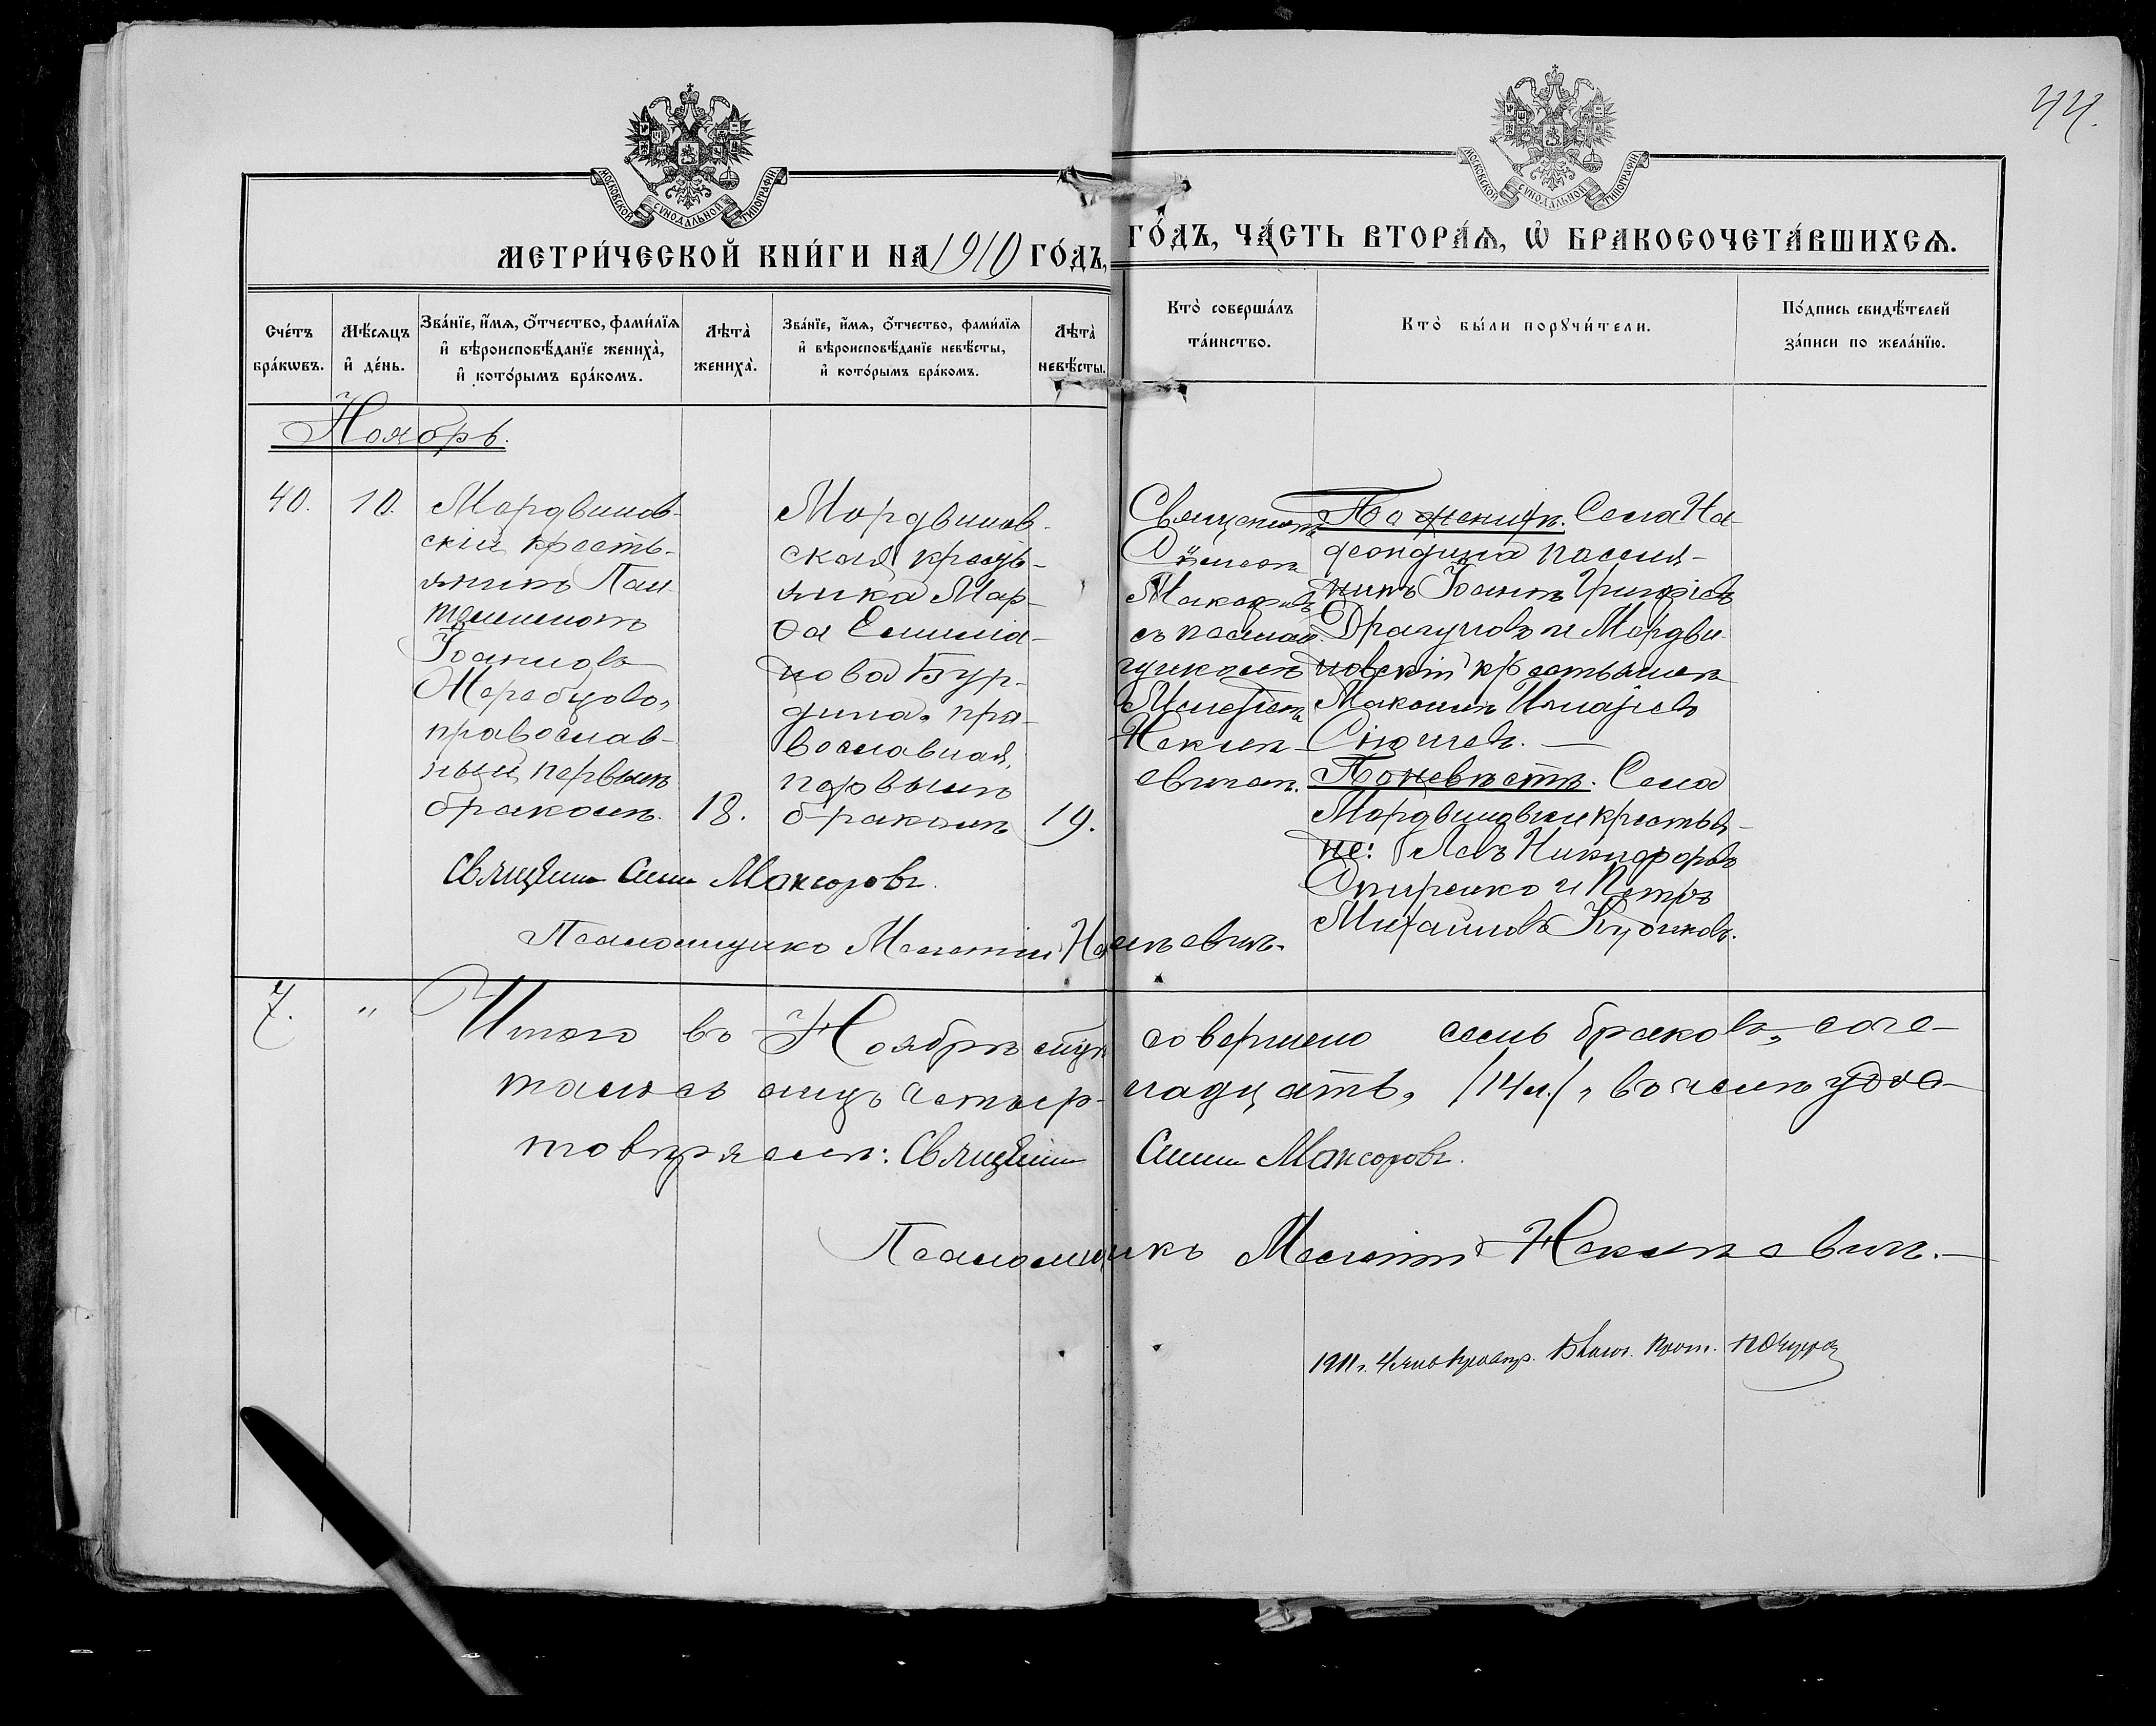 44.
МОСКОВСКОЙ СѴНОДАЛЬНОЙ ТИПОГРАФІИ
МОСКОВСКОЙ СѴНОДАЛЬНОЙ ТИПОГРАФІИ
МЕТРИ́ЧЕСКОЙ КНИ́ГИ НА 1910 ГО́ДЪ,
ГО́ДЪ, ЧА́СТЬ ВТОРА́Я, Ѡ҆ БРАКОСОЧЕТА́ВШИХСЯ.
Сче́тъ
бра́кѡвъ.
Мѣ́сяцъ
и҆ де́нь.
Зва́нїе, и҆́мя, ѻ҆́тчество, фами́лїя
и҆ вѣроисповѣ́данїе жениха̀,
и҆ кото́рымъ бра́комъ.
Лѣта̀
жениха̀.
Зва́нїе, и҆́мя, ѻ҆́тчество, фами́лїя
и҆ вѣроисповѣ́данїе невѣ́сты,
и҆ кото́рымъ бра́комъ.
Лѣта̀
невѣ́сты.
Кто̀ соверша́лъ
та́инство.
Кто̀ бы́ли порꙋчи́тели.
По́дпись свидѣ́телей
за́писи по жела́нїю.
Ноябрь.
40.
10.
Мордвинов-
скій кресть-
янинъ Пан-
телеимонъ
Іоанновъ
Жеребцовъ,
православ-
ный, первымъ
бракомъ.
18.
Мордвинов-
ская кресть-
янка Мар-
ѳа Емилiа-
нова Бур-
дина, пра-
вославная,
первымъ
бракомъ
19.
Священникъ
Симеонъ
Макаровъ
съ псалом-
щикомъ
Мелетіемъ
Некле-
евичемъ.
По женихѣ. Села На-
деждина поселя-
нинъ Іоаннъ Григорiевъ
Драгуновъ и Мордви-
новскій крестьянинъ
Максимъ Игнатiевъ
По невѣстѣ. Села
Мордвиновки крестья-
не: Левъ Никифоровъ
Спиренко и Петръ
Михайловъ Кубиковъ.
Священникъ Симеонъ Макаровъ.
Псаломщикъ Мелетій
7.
"
Итого въ Ноябрѣ мѣсяцѣ совершено семь браковъ, соче-
талось лицъ четыр-надцать, /14 л./, въ чемъ удо-
стовѣряемъ: Священникъ Симеонъ Макаровъ.
Псаломщикъ Мелетій
1911 г.